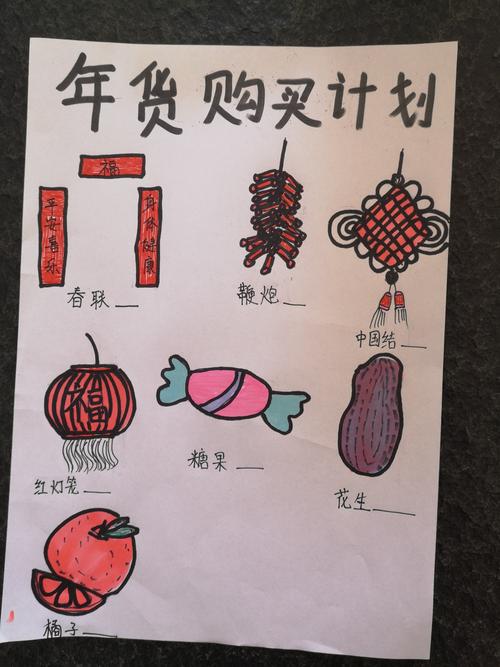 年货购买计划
福
平安喜乐
身体健康
春联__
鞭炮__
中国结__
福
红灯笼__
糖果__
花生__
橘子__